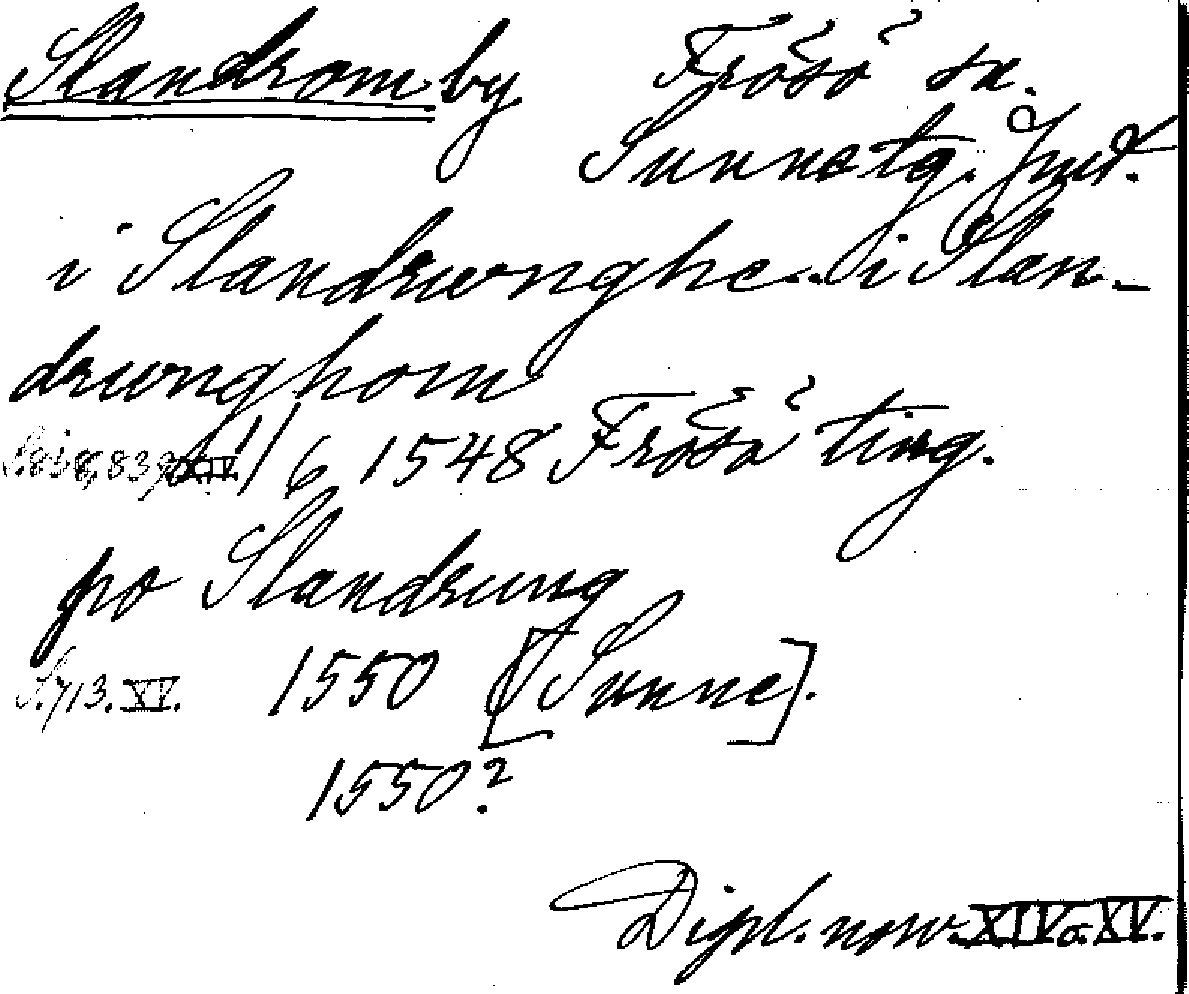 Slandrom by Frösö sn.
Sunne tg. Jmt.
i Slandrwnghe. i Slan-
drwnghom
S. 838, 839. XIV. 11/6 1548 Frösö ting.
po Slandrung
S. 713. XV. 1550 [Sunne].
1550?
Dipl. norv. XIV o. XV.